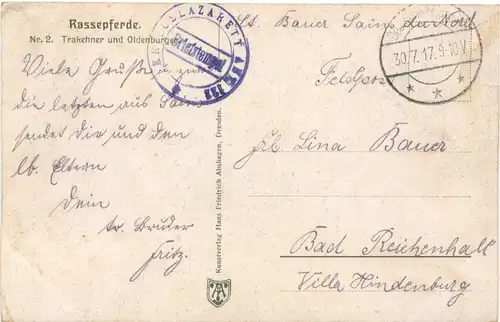 Rassepferde.
Nr. 2. Trakehner und Oldenburger
KRIEGSLAZARETT
Briefstempel
Viele Grüße
die letzten aus Sains
sendet Dir und den
lb. Eltern
Dein
tr. Bruder
Fritz.
Kunstverlag Hans Friedrich Abshagen, Dresden.
Lt. Bauer Sains du Nord
30.7.17.9-10V.
Feldpost
Frl. Lina Bauer
Bad Reichenhall
Villa Hindenburg